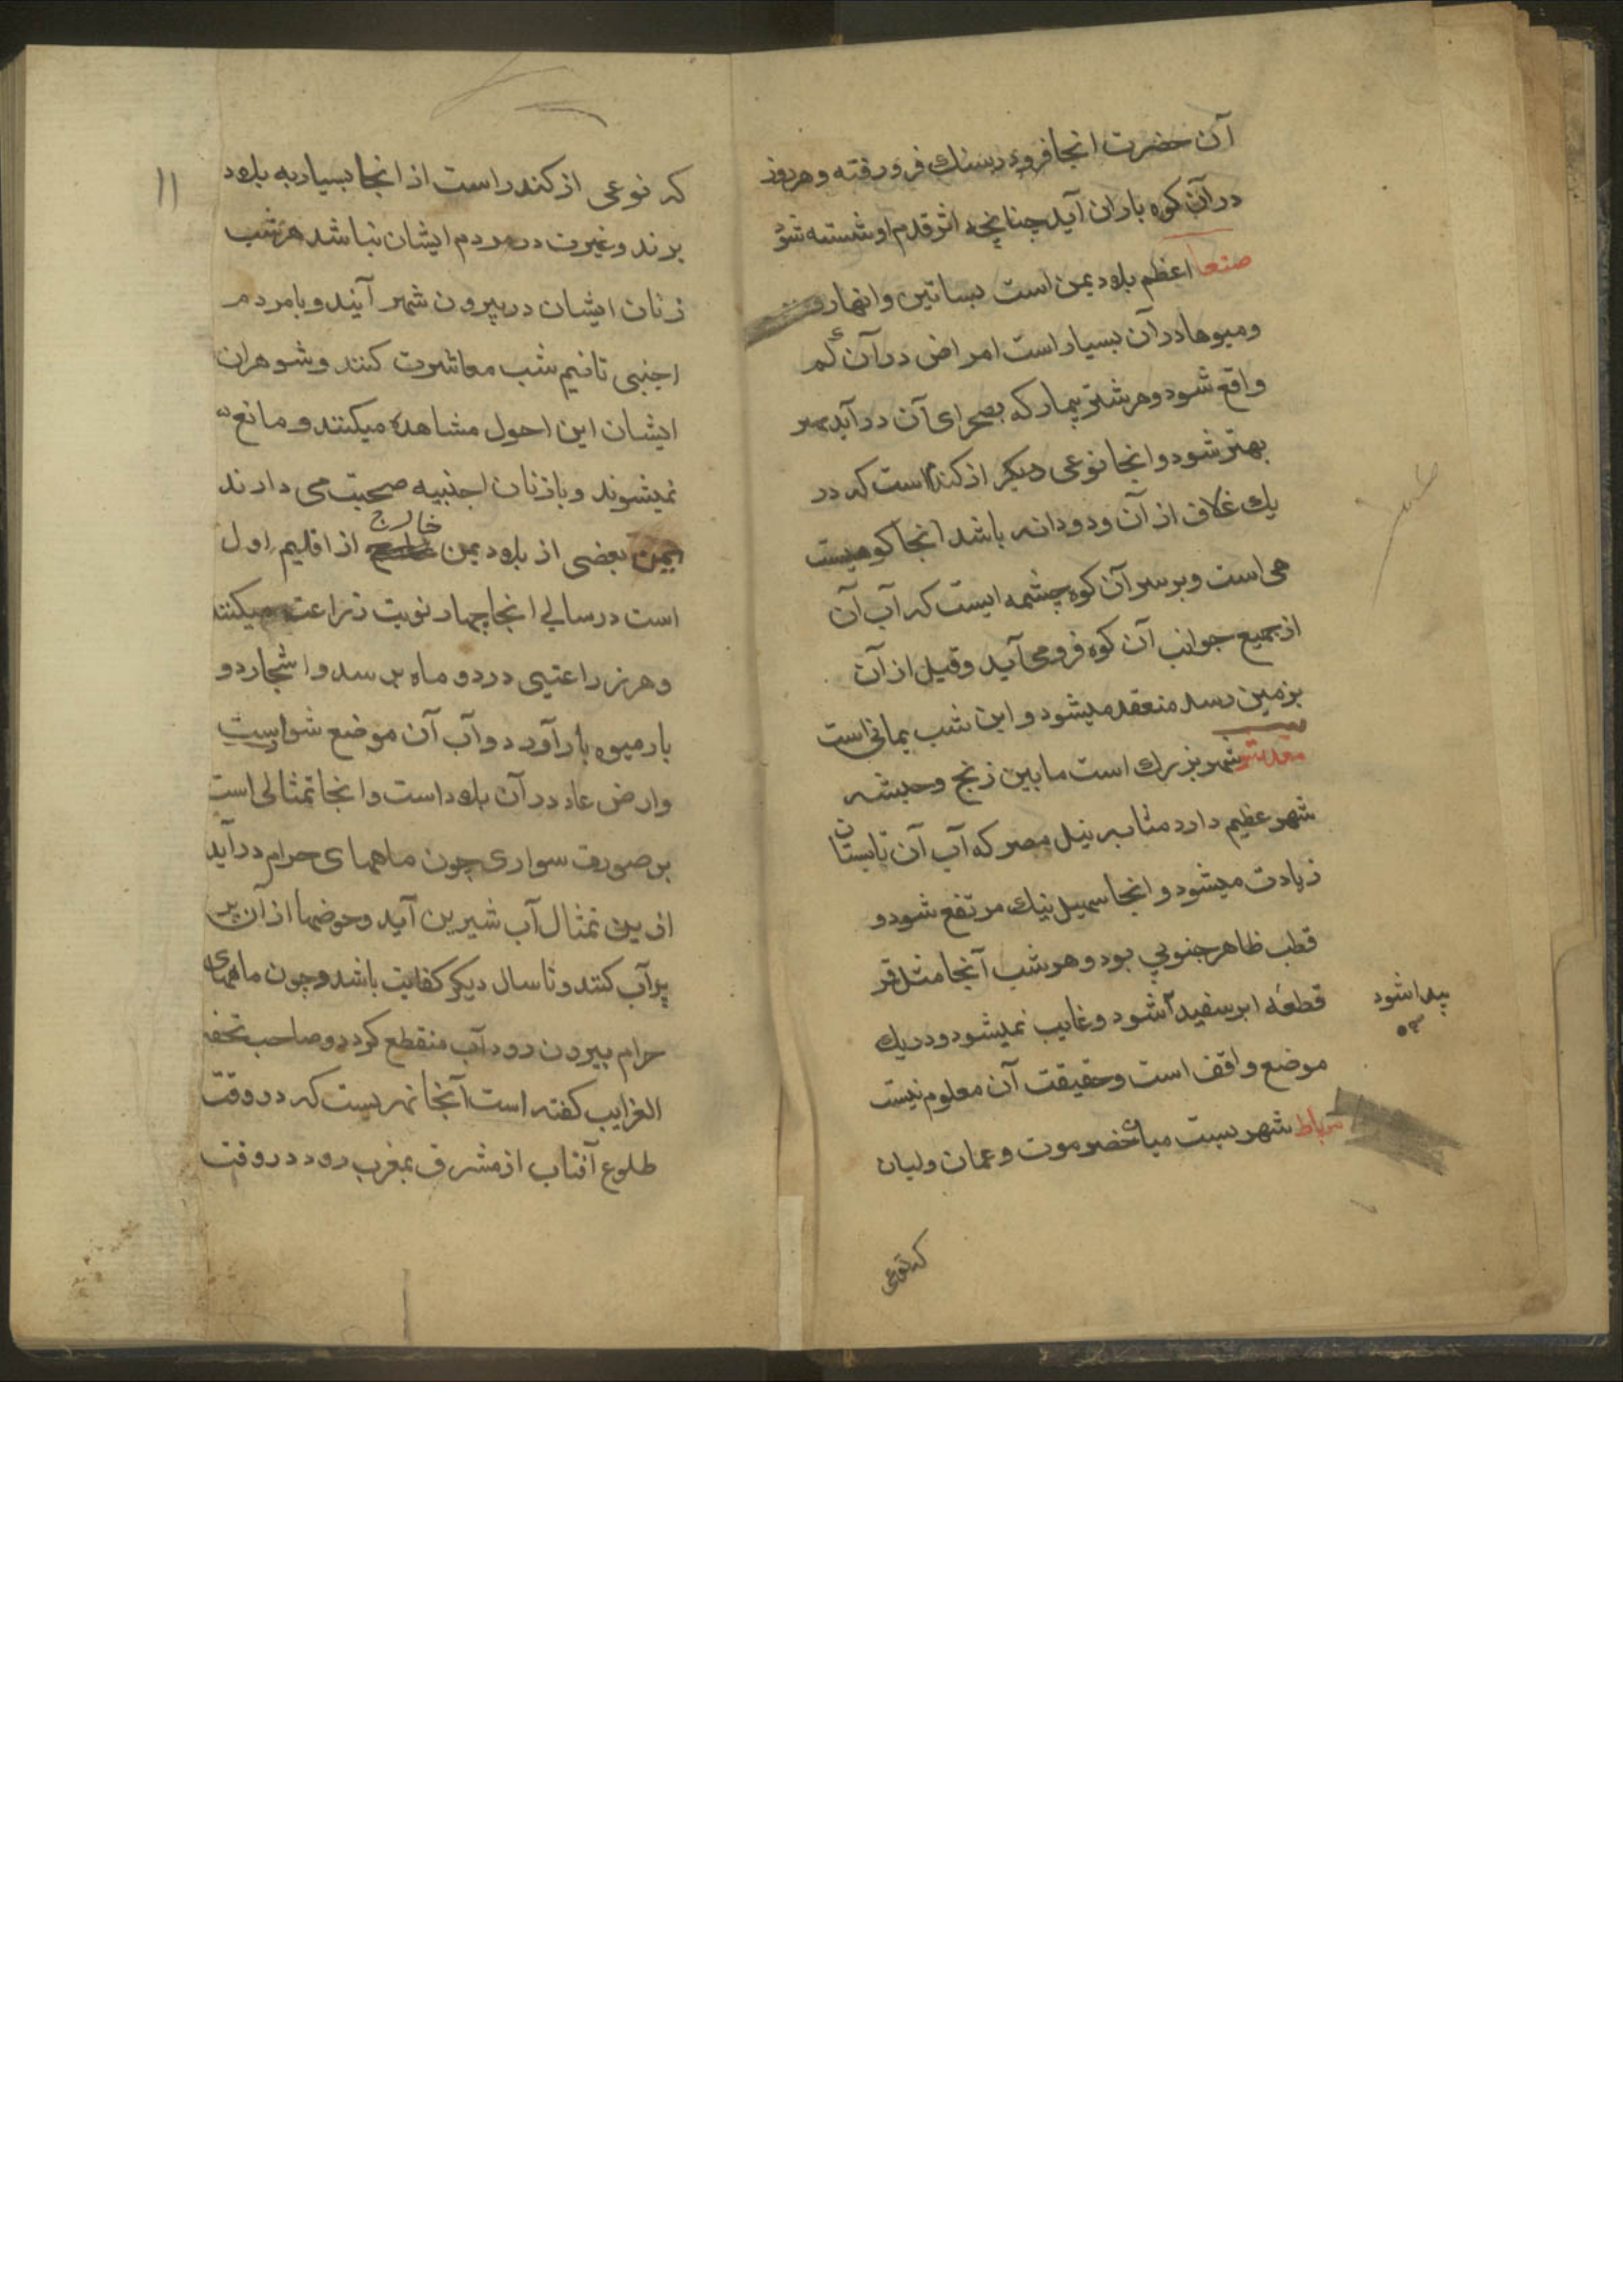 آن حضرت انجا فرود دسنك فرو رفته و هر روز
در آن كوه باران آيد چنانچه اثر قدم او شسته شود
صنعا اعظم بلاد يمن است بساتين و انهار و
و ميوها در آن بسيار است امراض در آن كم
واقع شود و هر شتر بيمار كه بصحراى آن در آيد
بهتر شود و انجا نوعى ديكر از كندر است كه در
يك غلاف از آن دو دانه باشد انجا كوهيست
مى است و بر سر آن كوه چشمه ايست كه آب آن
از جميع جوانب آن كوه فرو مى آيد و قبل از آن
بزمين رسد منعقد ميشود و اين شب يمانى است
مقدشو شهر بزرك است ما بين زنج و حبشه
شهر عظيم دارد مثابه نيل مصر كه آب آن تابستان
زيادت ميشود و انجا سهيل نيك مرتفع شود و
قطب ظاهر جنوبي بود و هر شب آنجا مثل قمر
قطعه ابر سفيد آشود و غايب نميشود و در يك
پيدا شود
موضع واقف است و حقيقت آن معلوم نيست
مرباط شهريست ميان حضرموت و عمان و لبان
كه نوعى
١١
كه نوعى از كندر است از انجا بسيار به بلاد
برند و غيرت در مردم ايشان نباشد هر شب
زنان ايشان در بيرون شهر آيند و با مردم
اجنبى تا نيم شب معاشرت كنند و شوهران
ايشان اين احول مشاهده ميكنند و مانع
نميشوند و با زنان اجنبيه صحبت مى دارند
يمن بعضى از بلاد يمن خارج از اقليم اول
است در سالي انجا چهار نوبت زراعت ميكنند
و هر زراعتيى در دو ماه برسد و اشجار دو
بار ميوه بار آورد و آب آن موضع شواست
و ارض عاد در آن بلاد است و انجا تمثالى است
بر صورت سوارى چون ماههاى حرام در آيد
از ين تمثال آب شيرين آيد و حوضها از آن پر
پر آب كنند و تا سال ديكر كفايت باشد و چون ماههاى
حرام بيرون رود آب منقطع كردد و صاحب تحفه
الغرايب كفته است آنجا نهريست كه در وقت
طلوع آفتاب از مشرق بمغرب رود در وقت